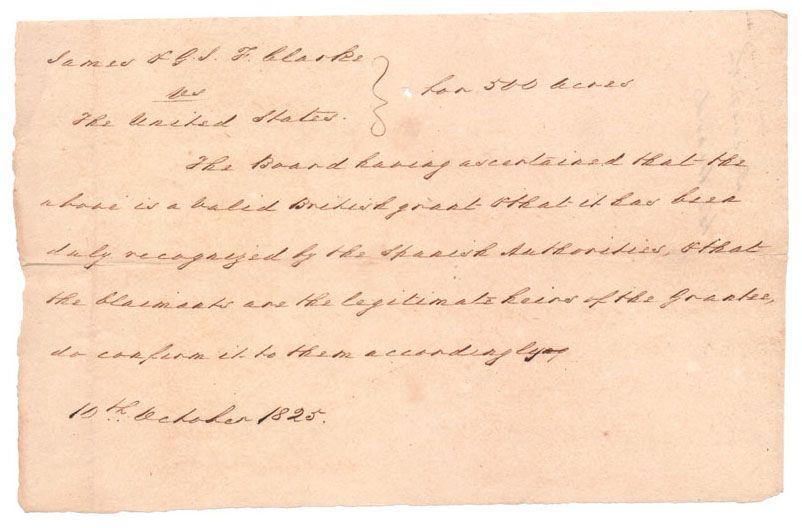 James & G. J. F. Clarke
vs
The United States.
for 500 Acres
The Board having ascertained that the
above is a valid British grant & that it has been
duly recognized by the Spanish Authorities, & that
the Claimants are the legitimate heirs of the Grantee,
do confirm it to them accordingly
10th. October 1825.